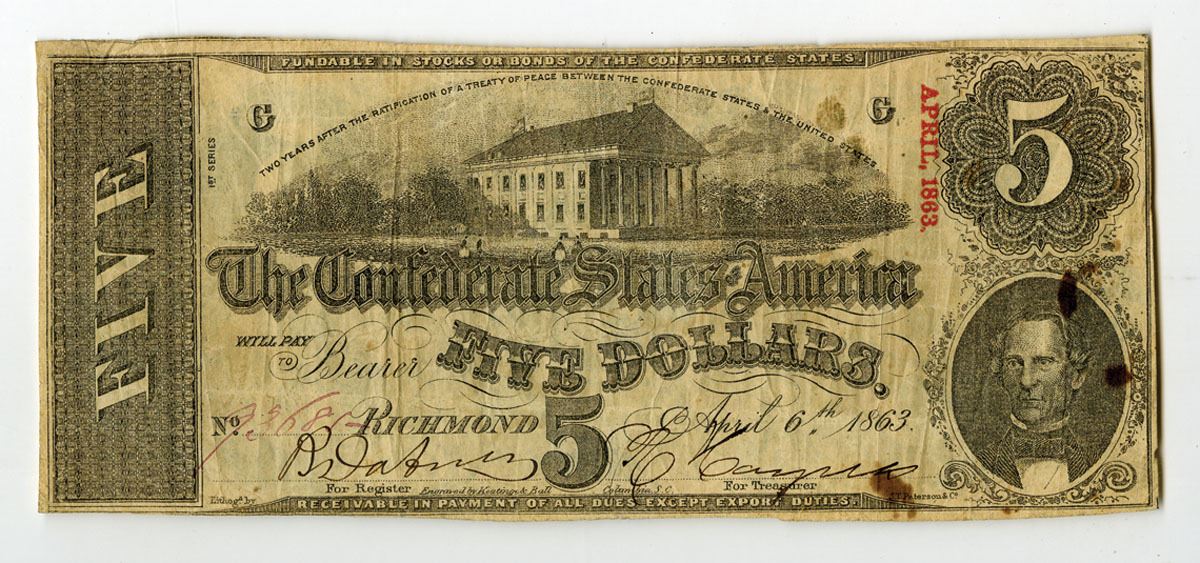 FUNDABLE IN STOCKS OR BONDS OF THE CONFEDERATE STATES
TWO YEARS AFTER THE RATIFICATION OF A TREATY OF PEACE BETWEEN THE CONFEDERATE STATES & THE UNITED STATES
G
G
1ST SERIES
APRIL, 1863.
5
FIVE
The Confederate States of America
WILL PAY
TO Bearer
FIVE DOLLARS.
No.
RICHMOND
5
April 6th 1863.
For Register
Engraved by Keatinge & Ball
Columbia, S.C.
For Treasurer
Lithog'd by
J.T. Paterson & Co
RECEIVABLE IN PAYMENT OF ALL DUES EXCEPT EXPORT DUTIES.